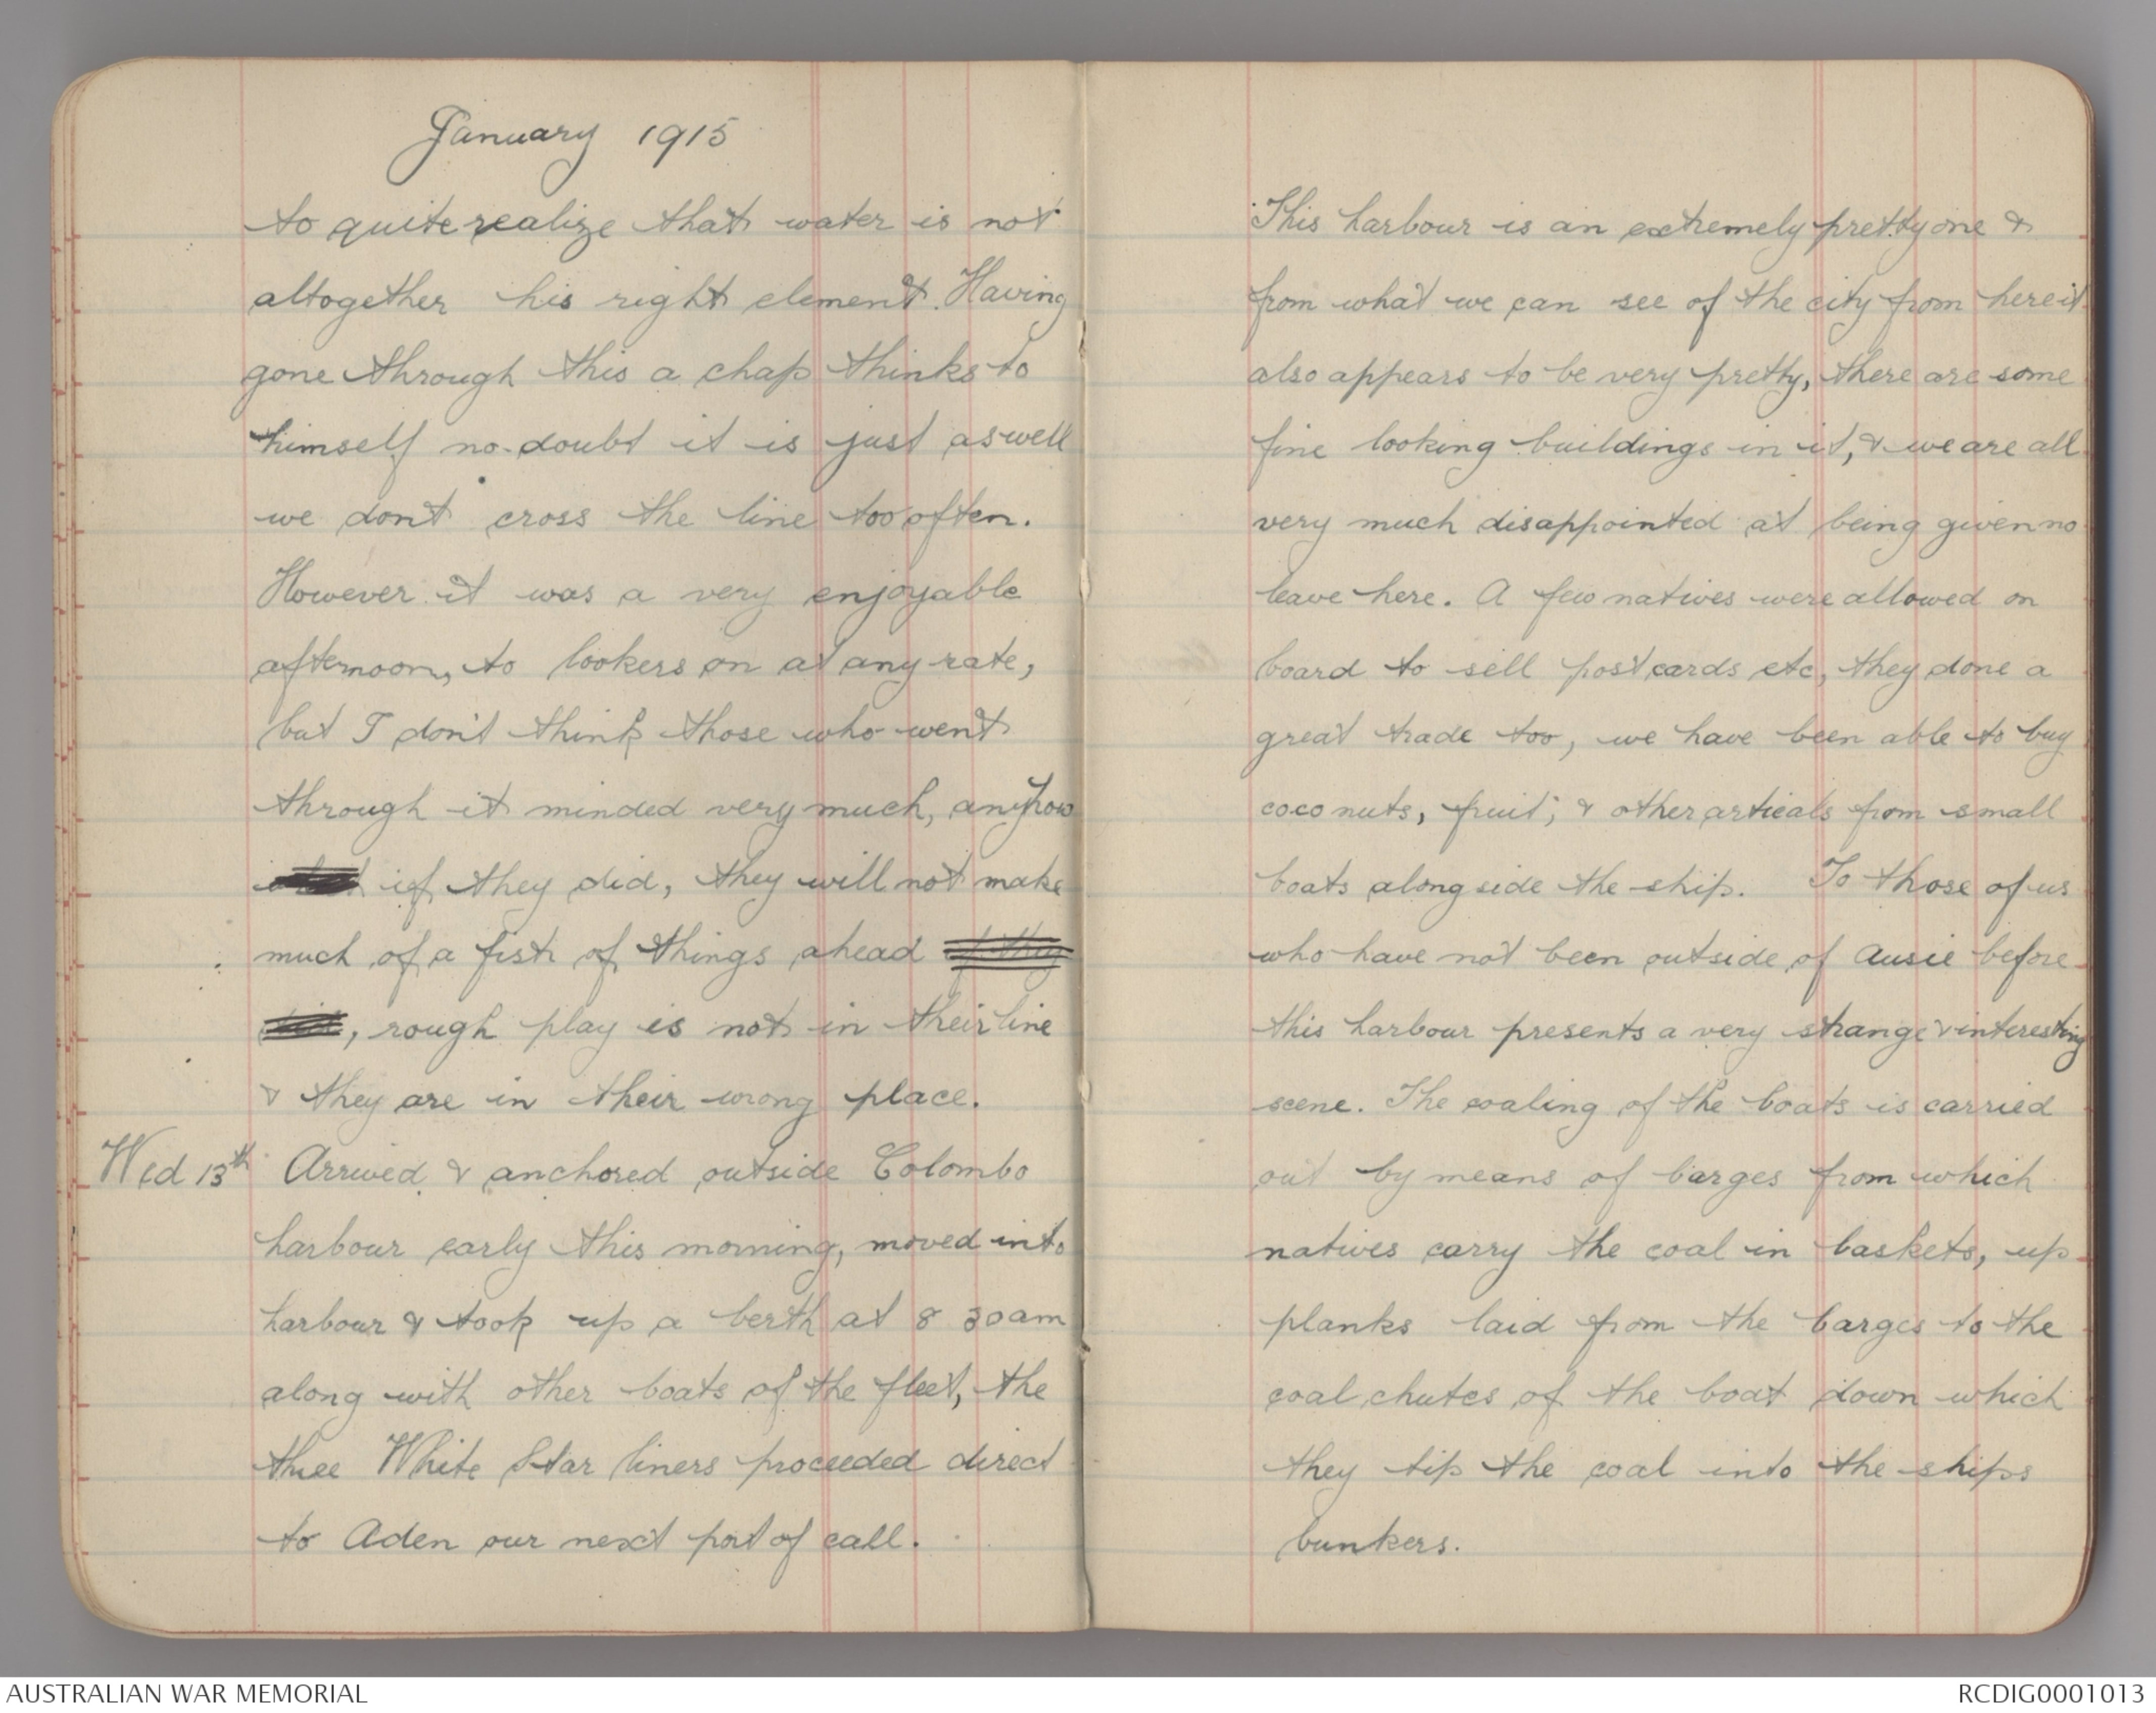 January 1915
to quite realize that water is not
altogether his right element. Having
gone through this a chap thinks to
himself no-doubt it is just as well
we don't cross the line too often.
However it was a very enjoyable
afternoon, to lookers on at any rate,
but I don't think those who went
through it minded very much, anyhow
if they did, they will not make
much of a fist of things ahead if they
, rough play is not in their line
& they are in their wrong place.
Wed 13th Arrived & anchored outside Colombo
harbour early this morning, moved into
harbour & took up a berth at 8 30am
along with other boats of the fleet, the
three White Star liners proceeded direct
to Aden our next port of call.
This harbour is an extremely pretty one &
from what we can see of the city from here it
also appears to be very pretty, there are some
fine looking buildings in it, & we are all
very much disappointed at being given no
leave here. A few natives were allowed on
board to sell post cards etc, they done a
great trade too, we have been able to buy
coco nuts, fruit, & other articals from small
boats along side the ship. To those of us
who have not been outside of Ausie before
this harbour presents a very strange & interesting
scene. The coaling of the boats is carried
out by means of barges from which
natives carry the coal in baskets, up
planks laid from the barges to the
coal chutes of the boat down which
they tip the coal into the ships
bunkers.
AUSTRALIAN WAR MEMORIAL
RCDIG0001013